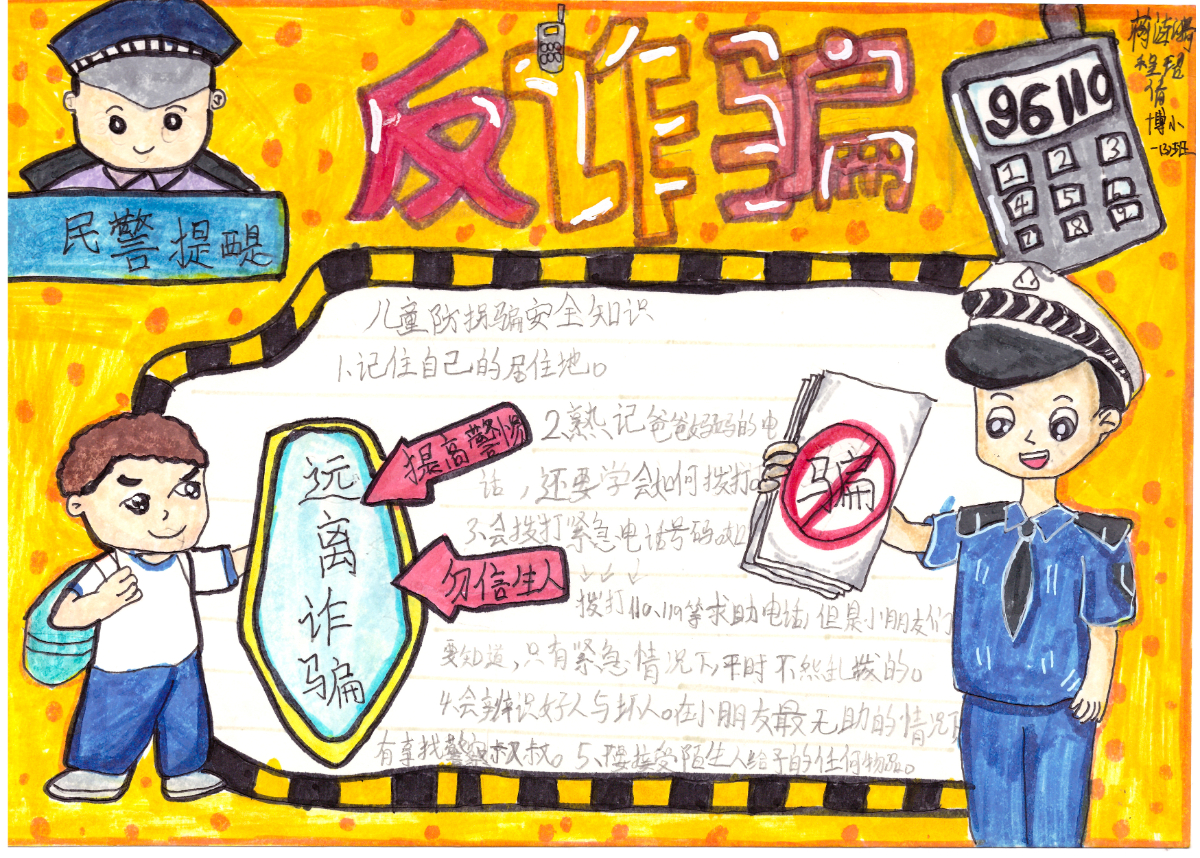 反诈骗
96110
1 2 3
4 5 6
7 8 9
程
博小
一(3)班
民警提醒
儿童防拐骗安全知识
1、记住自己的居住地。
2、熟记爸爸妈妈的电
话，还要学会如何拨打。
3、会拨打紧急电话号码。如
拨打110、119等求助电话，但是小朋友们
要知道，只有紧急情况下，平时不然乱拨的。
4、会辨识好人与坏人。在小朋友最无助的情况下
有事找警察叔叔。5、不要接受陌生人给予的任何物品。
提高警惕
勿信生人
远离诈骗
骗